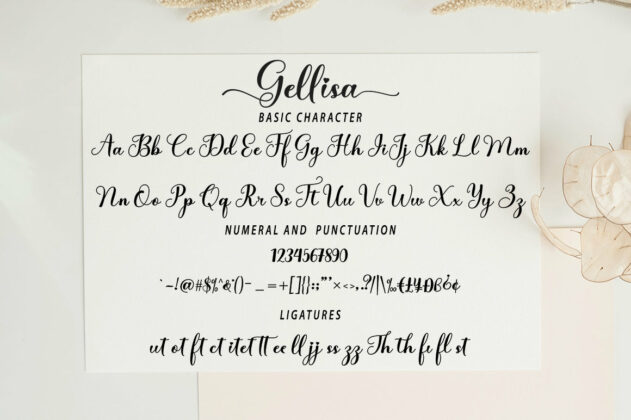 Gellisa
BASIC CHARACTER
Aa Bb Cc Dd Ee Ff Gg Hh Ii Jj Kk Ll Mm
Nn Oo Pp Qq Rr Ss Tt Uu Vv Ww Xx Yy Zz
NUMERAL AND PUNCTUATION
1234567890
`~!@#$%^&*()-_=+[]{}:;"'×<>,.?/|\‰€£¥
LIGATURES
ut ot ft et itet tt ee ll jj ss zz Th th fi fl st